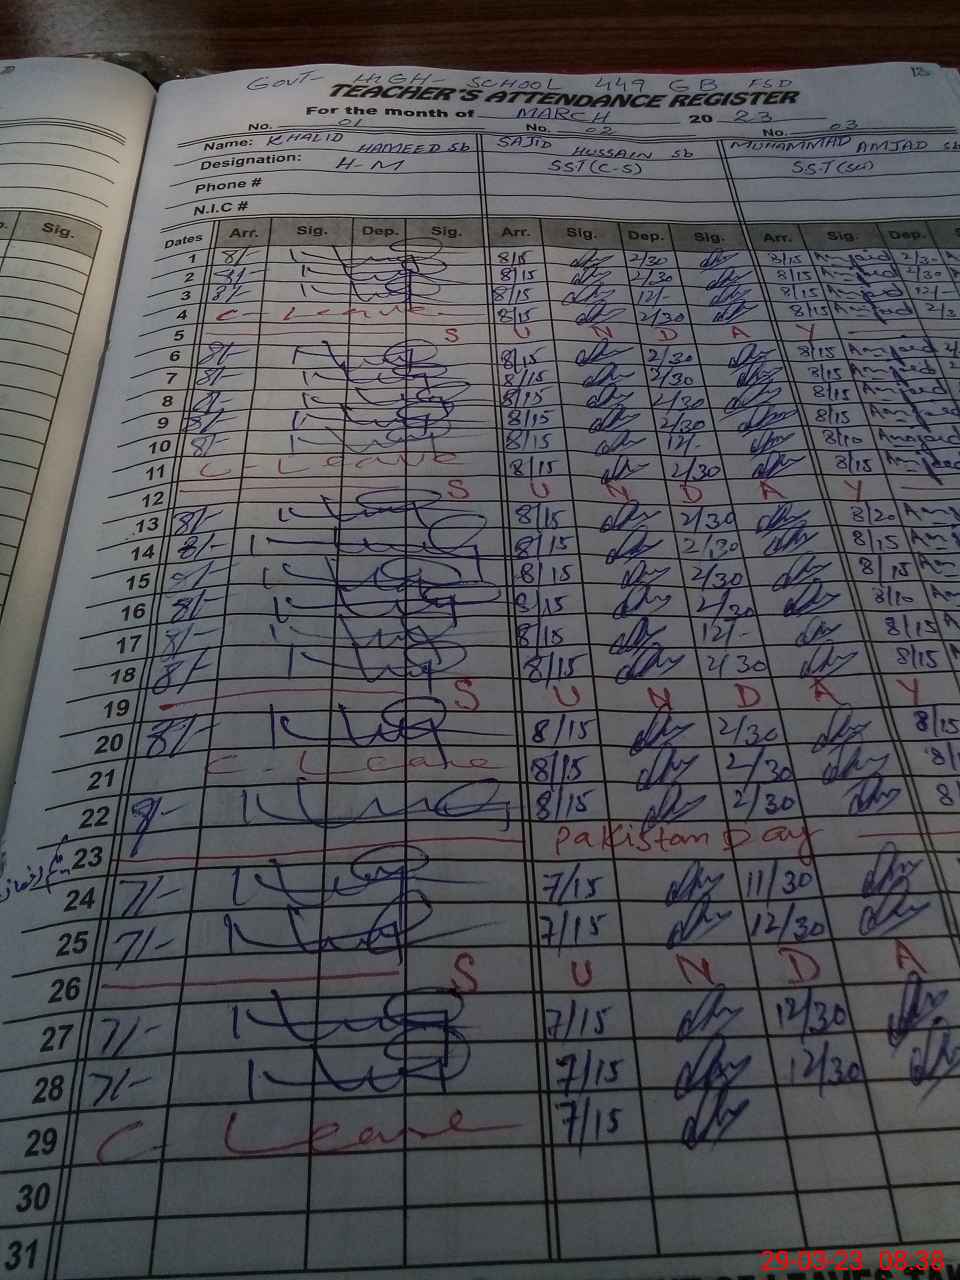 13
GOVT- HIGH- SCHOOL 449 GB FSD
TEACHER'S ATTENDANCE REGISTER
For the month of MARCH 20 23
No. 01 No. 02 No. 03
Name: KHALID HAMEED Sb SAJID HUSSAIN Sb MUHAMMAD AMJAD Sb
Designation: H-M SST(C-S) SST(Sci)
Phone #
N.I.C #
Sig. Dates Arr. Sig. Dep. Sig. Arr. Sig. Dep. Sig. Arr. Sig. Dep. S
1 8/- 8/15 2/30 8/15 Amjad 2/30
2 8/- 8/15 2/30 8/15 Amjad 2/30
3 8/- 8/15 12/- 8/15 Amjad 12/-
4 C-Leave 8/15 2/30 8/15 Amjad 2/3
5 S U N D A Y
6 8/- 8/15 2/30 8/15 Amjad
7 8/- 8/15 2/30 8/15 Amjad
8 8/- 8/15 2/30 8/15 Amjad
9 8/- 8/15 2/30 8/15 Amjad
10 8/- 8/15 12/- 8/10 Amjad
11 C-Leave 8/15 2/30 8/15 Amjad
12 S U N D A Y
13 8/- 8/15 2/30 8/20
14 8/- 8/15 2/30 8/15
15 8/- 8/15 2/30 8/15
16 8/- 8/15 2/30 8/10
17 8/- 8/15 12/- 8/15
18 8/- 8/15 2/30 8/15
19 S U N D A Y
20 8/- 8/15 2/30 8/15
21 C-Leave 8/15 2/30 8/1
22 8/- 8/15 2/30 8
23 Pakistan Day
24 7/- 7/15 11/30
25 7/- 7/15 12/30
26 S U N D A
27 7/- 7/15 12/30
28 7/- 7/15 12/30
29 C-Leave 7/15
30
31
29-03-23 08:38